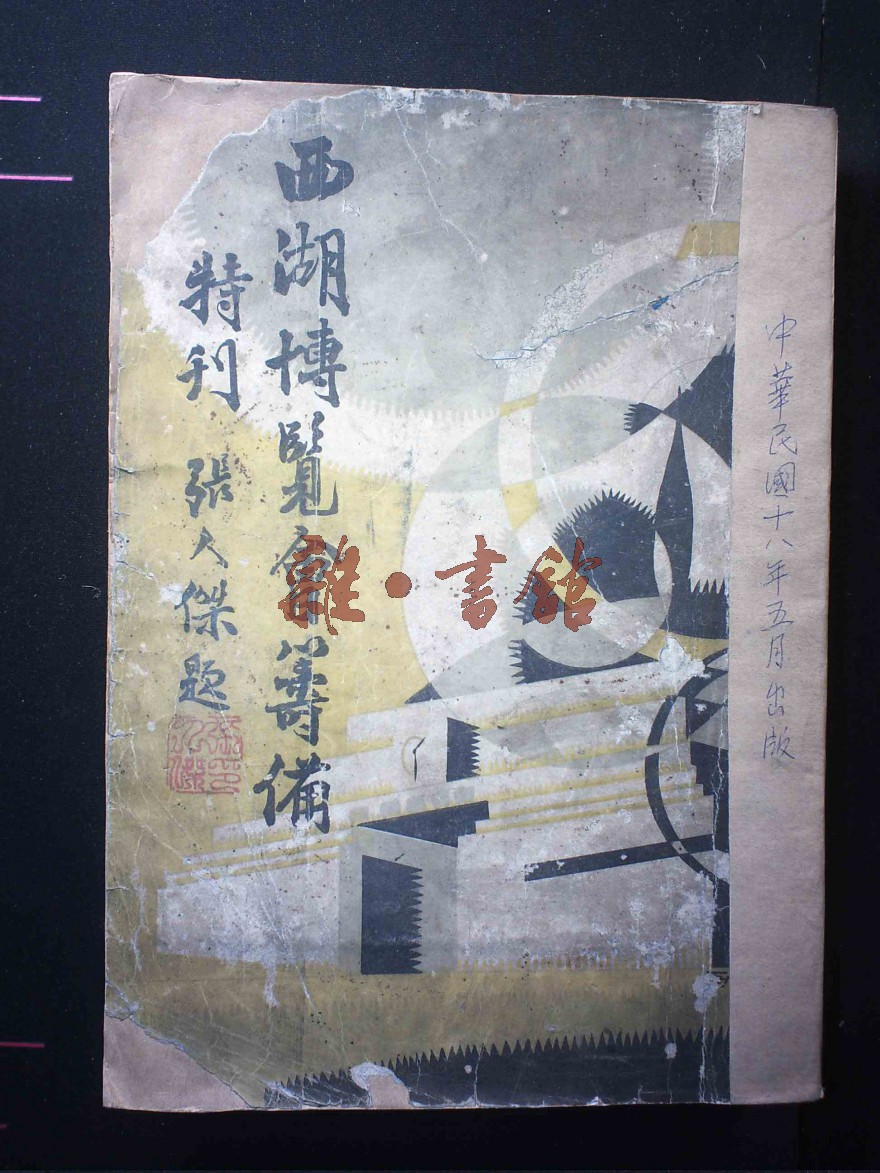 中華民國十八年五月出版
西湖博覽會籌備
特刊 張人傑題
雜·書館